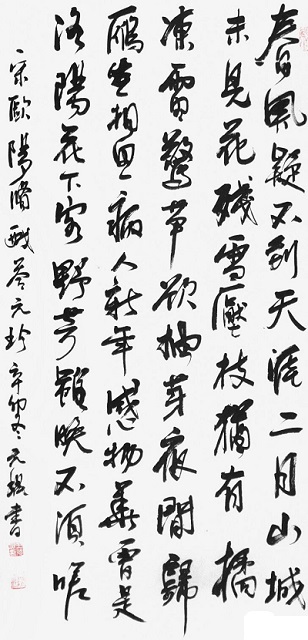 春風疑不到天涯二月山城
未見花殘雪壓枝猶有橘
凍雷驚笋欲抽芽夜聞歸
鴈生相思病人新年感物華曾是
洛陽花下客野芳雖晚不須嗟
宋歐陽脩戲答元珍辛卯冬元書